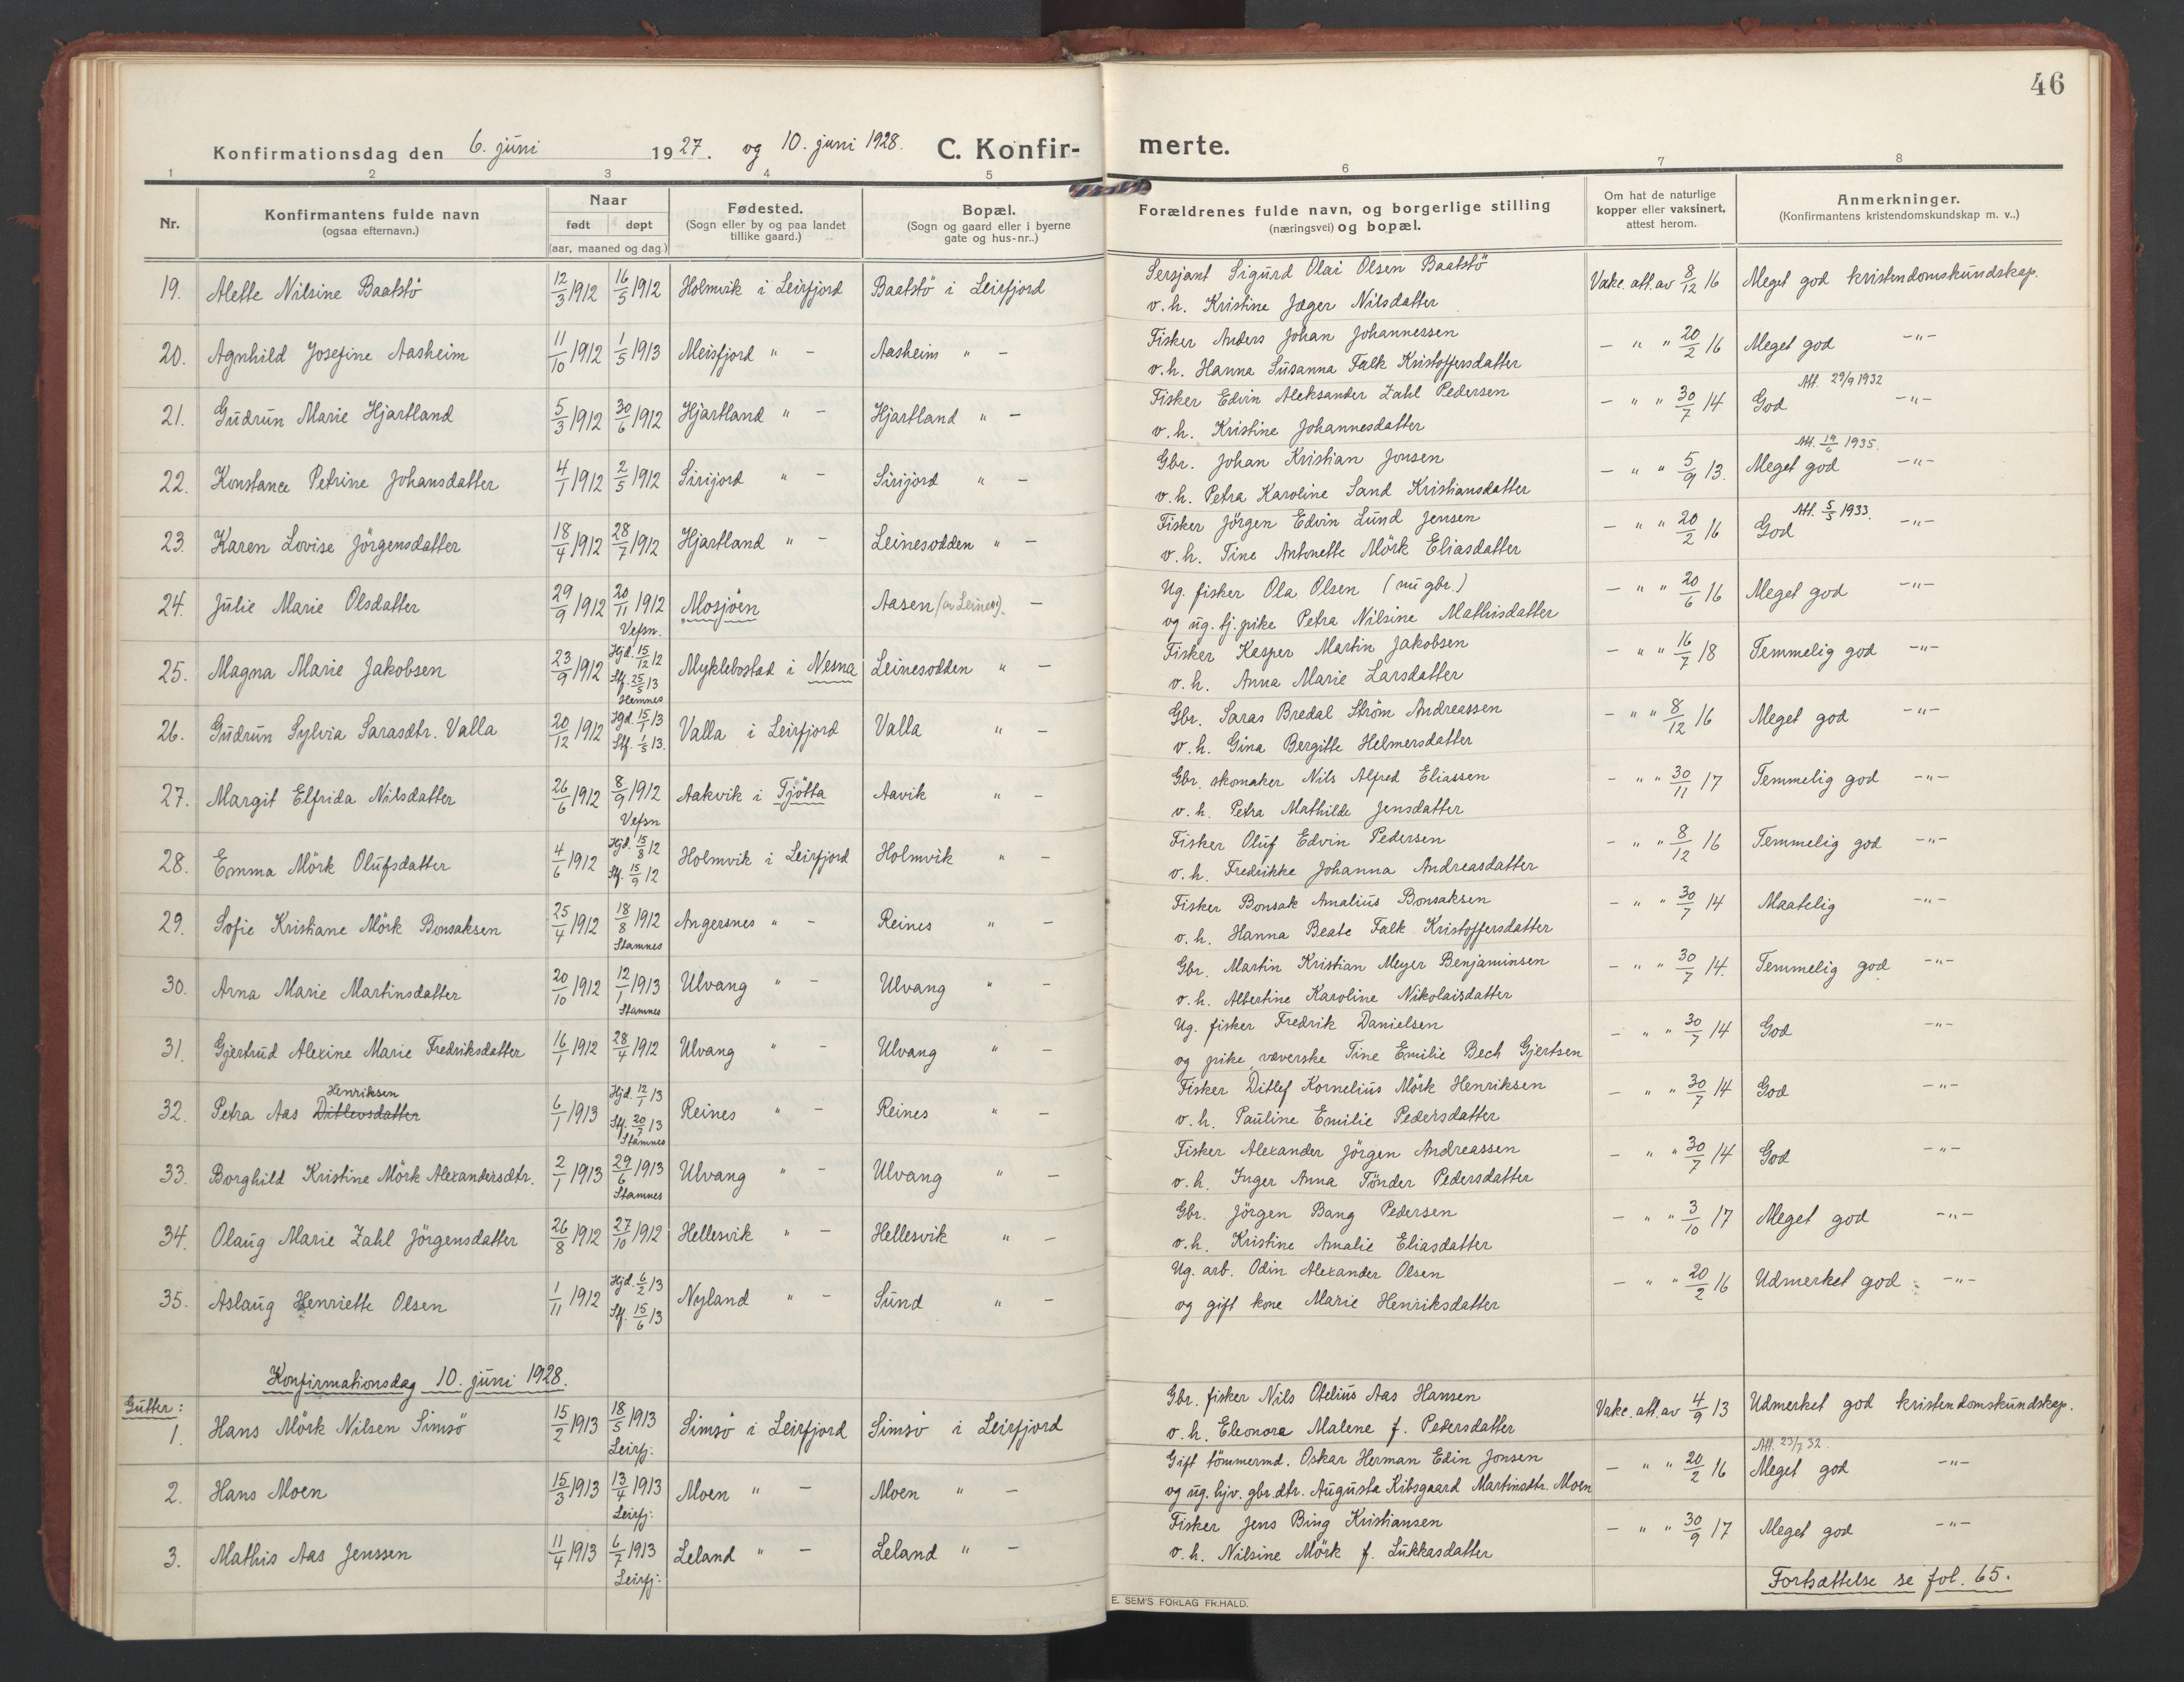 46
Konfirmationsdag den 6. juni 1927. og 10. juni 1928. C. Konfir- merte.
1 2 3 4 5 6 7 8
Nr.
Konfirmantens fulde navn
(ogsaa efternavn.)
Naar
født døpt
(aar, maaned og dag.)
Fødested.
(Sogn eller by og paa landet
tillike gaard.)
Bopæl.
(Sogn og gaard eller i byerne
gate og hus-nr..)
Forældrenes fulde navn, og borgerlige stilling
(næringsvei) og bopæl.
Om hat de naturlige
kopper eller vaksinert,
attest herom.
Anmerkninger.
(Konfirmantens kristendomskundskap m. v..)
19. Alette Nilsine Baatstö 12/3 1912 16/5 1912 Holmvik i Leirfjord Baatstö i Leirfjord Sersjant Sigurd Olai Olsen Baatstö Vakc. att. av 8/12 16 Meget god kristendomskundskap.
v. h. Kristine Jæger Nilsdatter
20. Agnhild Josefine Aasheim 11/10 1912 1/5 1913 Meisfjord " - Aasheim " - Fisker Anders Johan Johannessen - " " 20/2 16 Meget god -"-
v. h. Hanna Susanna Falk Kristoffersdatter
21. Gudrun Marie Hjartland 5/3 1912 30/6 1912 Hjartland " - Hjartland " - Fisker Edvin Aleksander Zahl Pedersen - " " 30/7 14 God Att. 29/9 1932 -"-
v. h. Kristine Johannesdatter
22. Konstance Petrine Johansdatter 4/1 1912 2/5 1912 Sirijord " - Sirijord " - Gbr. Johan Kristian Jonsen - " " 5/9 13. Meget god Att. 19/6 1935. -"-
v. h. Petra Karoline Sand Kristiansdatter
23. Karen Lovise Jörgensdatter 18/4 1912 28/7 1912 Hjartland " - Leinesodden " - Fisker Jörgen Edvin Lund Jensen - " " 20/2 16 God Att. 5/5 1933. -"-
v. h. Tine Antonette Mörk Eliasdatter
24. Julie Marie Olsdatter 29/9 1912 20/11 1912 Vefsn. Mosjöen Aasen (av Leines). - Ug. fisker Ola Olsen (nu gbr.) - " " 20/6 16 Meget god -"-
og ug. tj. pike Petra Nilsine Mathisdatter
25. Magna Marie Jakobsen 23/9 1912 Hjd. 15/12 12 Stf. 25/5 13 Hemnes Myklebostad i Nesna Leinesodden " - Fisker Kasper Martin Jakobsen - " " 16/7 18 Temmelig god -"-
v. h. Anna Marie Larsdatter
26. Gudrun Sylvia Sarasdtr. Valla 20/12 1912 Hjd. 15/1 13 Stf. 1/5 13. Valla i Leirfjord Valla " - Gbr. Saras Bredal Ström Andreassen - " " 8/12 16 Meget god -"-
v. h. Gina Bergitte Helmersdatter
27. Margit Elfrida Nilsdatter 26/6 1912 8/9 1912 Vefsn Aakvik i Tjötta Aavik " - Gbr. skomaker Nils Alfred Eliassen - " " 30/11 17 Temmelig god -"-
v. h. Petra Mathilde Jensdatter
28. Emma Mörk Olufsdatter 4/6 1912 Hjd. 15/8 12 Stf. 15/9 12 Holmvik i Leirfjord Holmvik " - Fisker Oluf Edvin Pedersen - " " 8/12 16 Temmelig god -"-
v. h. Fredrikke Johanna Andreasdatter
29. Sofie Kristiane Mörk Bonsaksen 25/4 1912 18/8 1912 Stamnes Angersnes " - Reines " - Fisker Bonsak Amalius Bonsaksen - " " 30/7 14 Maatelig -"-
v. h. Hanna Beate Falk Kristoffersdatter
30. Arna Marie Martinsdatter 20/10 1912 12/1 1913 Stamnes Ulvang " - Ulvang " - Gbr. Martin Kristian Meyer Benjaminsen - " " 30/7 14. Temmelig god -"-
v. h. Albertine Karoline Nikolaisdatter
31. Gjertrud Alexine Marie Fredriksdatter 16/1 1912 28/4 1912 Ulvang " - Ulvang " - Ug. fisker Fredrik Danielsen - " " 30/7 14 God -"-
og pike væverske Tine Emilie Bech Gjertsen
32. Petra Aas Ditlevsdatter Henriksen 6/1 1913 Hjd. 12/1 13 Stf. 20/7 13 Stamnes Reines " - Reines " - Fisker Ditlef Kornelius Mörk Henriksen - " " 30/7 14 God -"-
v. h. Pauline Emilie Pedersdatter
33. Borghild Kristine Mörk Alexandersdtr. 2/1 1913 29/6 1913 Stamnes Ulvang " - Ulvang " - Fisker Alexander Jörgen Andreassen - " " 30/7 14 God -"-
v. h. Inger Anna Tönder Pedersdatter
34. Olaug Marie Zahl Jörgensdatter 26/8 1912 27/10 1912 Hellesvik " - Hellesvik " - Gbr. Jörgen Bang Pedersen - " " 3/10 17 Meget god -"-
v. h. Kristine Amalie Eliasdatter
35. Aslaug Henriette Olsen 1/11 1912 Hjd. 6/2 13 Stf. 15/6 13 Nyland " - Sund " - Ug. arb. Odin Alexander Olsen - " " 20/2 16 Udmerket god -"-
og gift kone Marie Henriksdatter
Konfirmationsdag 10. juni 1928.
Gutter:
1. Hans Mörk Nilsen Simsö 15/2 1913 18/5 1913 Leirfj. Simsö i Leirfjord Simsö i Leirfjord Gbr. fisker Nils Otelius Aas Hansen Vakc. att. av 4/9 13 Udmerket god kristendomskundskap.
v. h. Eleonora Malene f. Pedersdatter
2. Hans Moen 15/3 1913 13/4 1913 Leirfj. Moen " - Moen " - Gift tömmermd. Oskar Herman Edin Jonsen - " " 20/2 16 Att. 23/7 32. Meget god -"-
og ug. hjv. gbr. dtr. Augusta Kibsgaard Martinsdtr. Moen
3. Mathis Aas Jenssen 11/4 1913 6/7 1913 Leirfj. Leland " - Leland " - Fisker Jens Bing Kristiansen - " " 30/9 17 Meget god -"-
v. h. Nilsine Mörk f. Lukkasdatter
Fortsættelse se fol. 65.
E. SEM'S FORLAG FR.HALD.